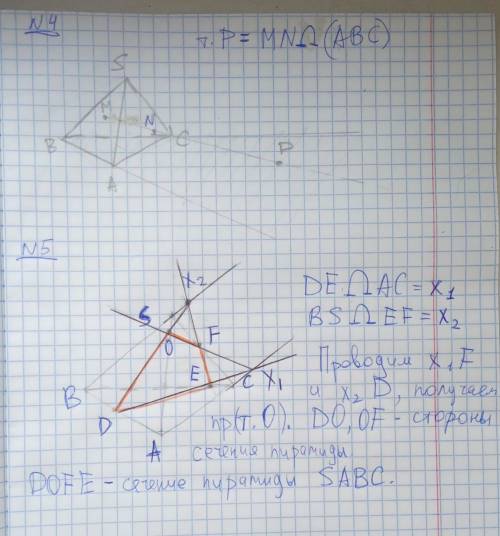 N4
т. P = MN ∩ (ABC)
S
M
N
B
C
P
A
N5
X2
DE ∩ AC = X1
BS ∩ EF = X2
S
O
F
Проводим X1F
E
C
X1
и X2D, получаем
B
D
пр(т. O). DO, OF - стороны
A
сечения пирамиды
DOFE - сечение пирамиды SABC.